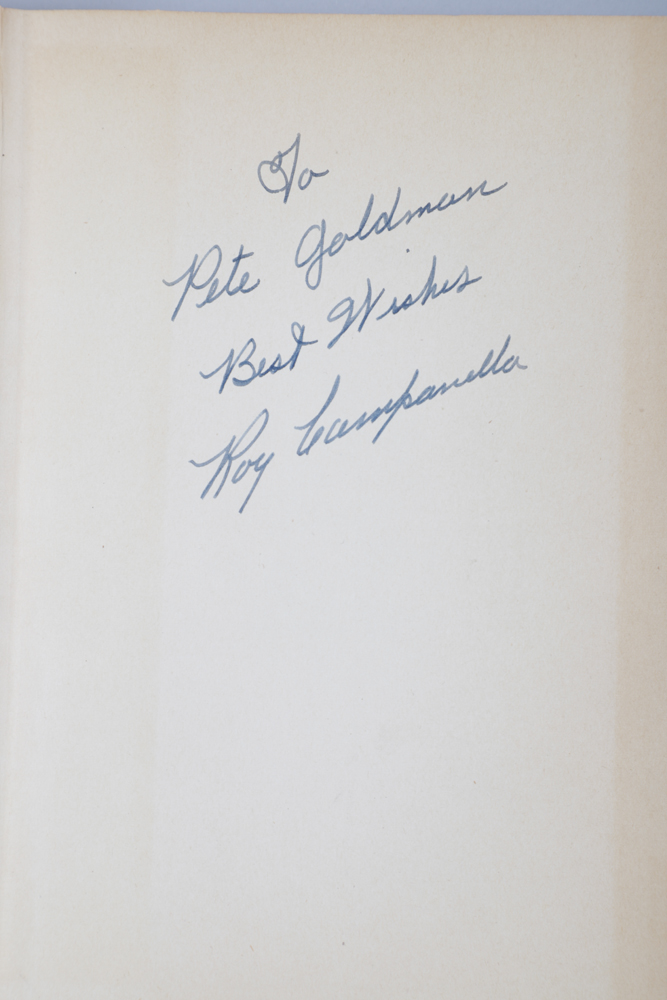 To
Pete Goldman
Best Wishes
Roy Campanella